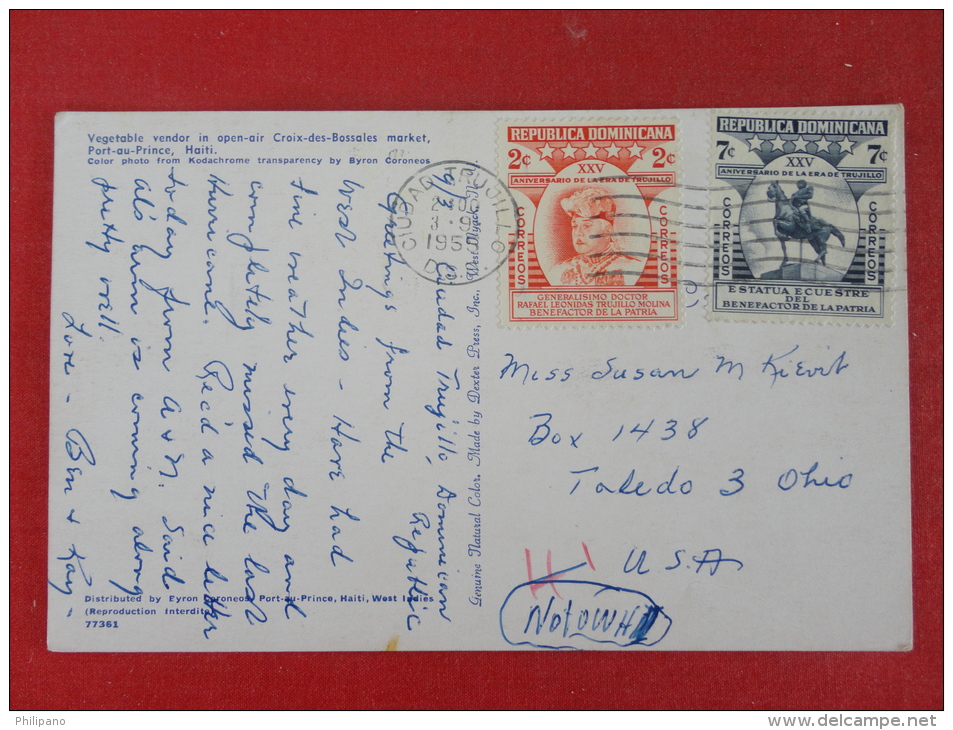 Vegetable vendor in open-air Croix-des-Bossales market,
Port-au-Prince, Haiti.
Color photo from Kodachrome transparency by Byron Coroneos
9/3 Ciudad Trujillo, Dominican
Republic
Greetings from the
West Indies - Have had
fine weather every day and
completely missed the last
hurricane. Rec'd a nice letter
today from A & N. Said
arm is coming along
pretty well.
Love - Ben & Kay -
Distributed by Eyron Coroneos, Port-au-Prince, Haiti, West Indies
(Reproduction Interdite)
77361
Genuine Natural Color, Made by Dexter Press, Inc., West Nyack, N.Y.
CIUDAD TRUJILLO
REPUBLICA DOMINICANA
2¢ 2¢
XXV
ANIVERSARIO DE LA ERA DE TRUJILLO
CORREOS CORREOS
GENERALISIMO DOCTOR
RAFAEL LEONIDAS TRUJILLO MOLINA
BENEFACTOR DE LA PATRIA
REPUBLICA DOMINICANA
7¢ 7¢
XXV
ANIVERSARIO DE LA ERA DE TRUJILLO
CORREOS CORREOS
ESTATUA ECUESTRE
DEL
BENEFACTOR DE LA PATRIA
Miss Susan M Kievit
Box 1438
Toledo 3 Ohio
U.S.A
Philipano
www.delcampe.net